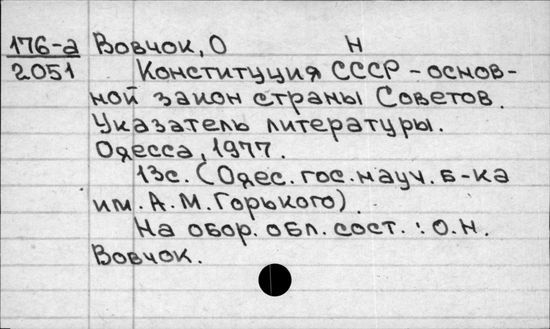 176-а Вовчок, О Н
2051 Конституция СССР - основ-
ной закон страны Советов.
Указатель литературы.
Одесса, 1977.
13с. (Одес. гос. науч. б-ка
им. А. М. Горького)
На обор. обл. сост. : О.Н.
Вовчок.